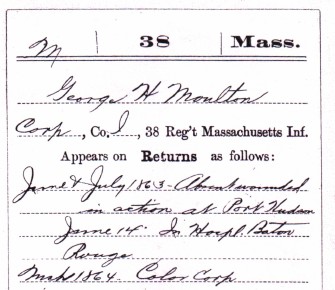 M 38 Mass.
George H Moulton
Corp, Co. I, 38 Reg't Massachusetts Inf.
Appears on Returns as follows:
June & July 1863 - Absent wounded
in action at Port Hudson
June 14. In Hospl Baton
Rouge
Mch 1864. Color Corp